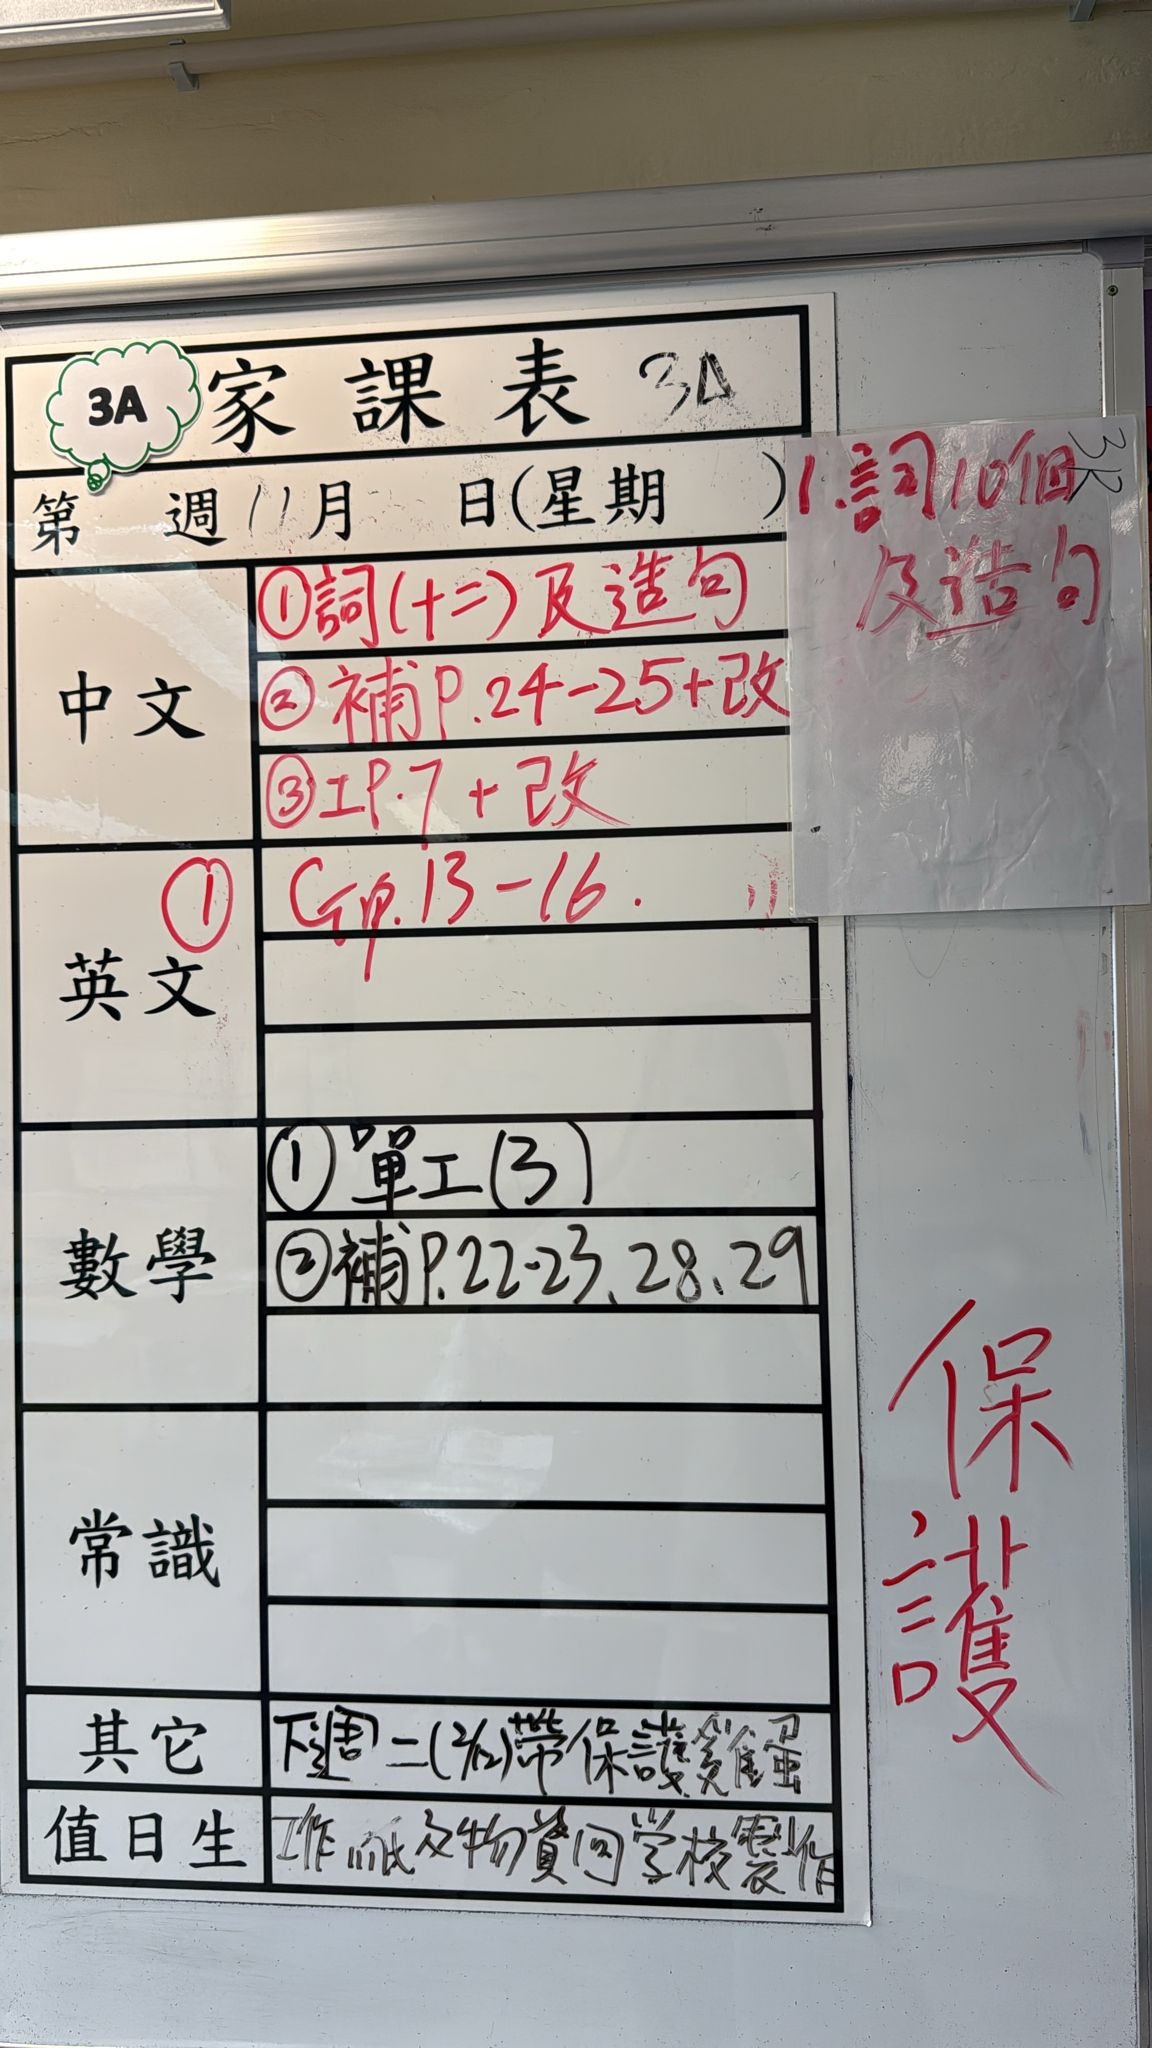 3A 家課表 3A
第 週 11月 日(星期 )
中文
①詞(十二)及造句
②補P.24-25+改
③工P.7+改
英文
① GP.13-16.
數學
①單工(3)
②補P.22-23、28、29
常識
其它
下週二(2/12)帶保護雞蛋
值日生
工作紙及物資回學校製作
1.詞10個
及造句
保護